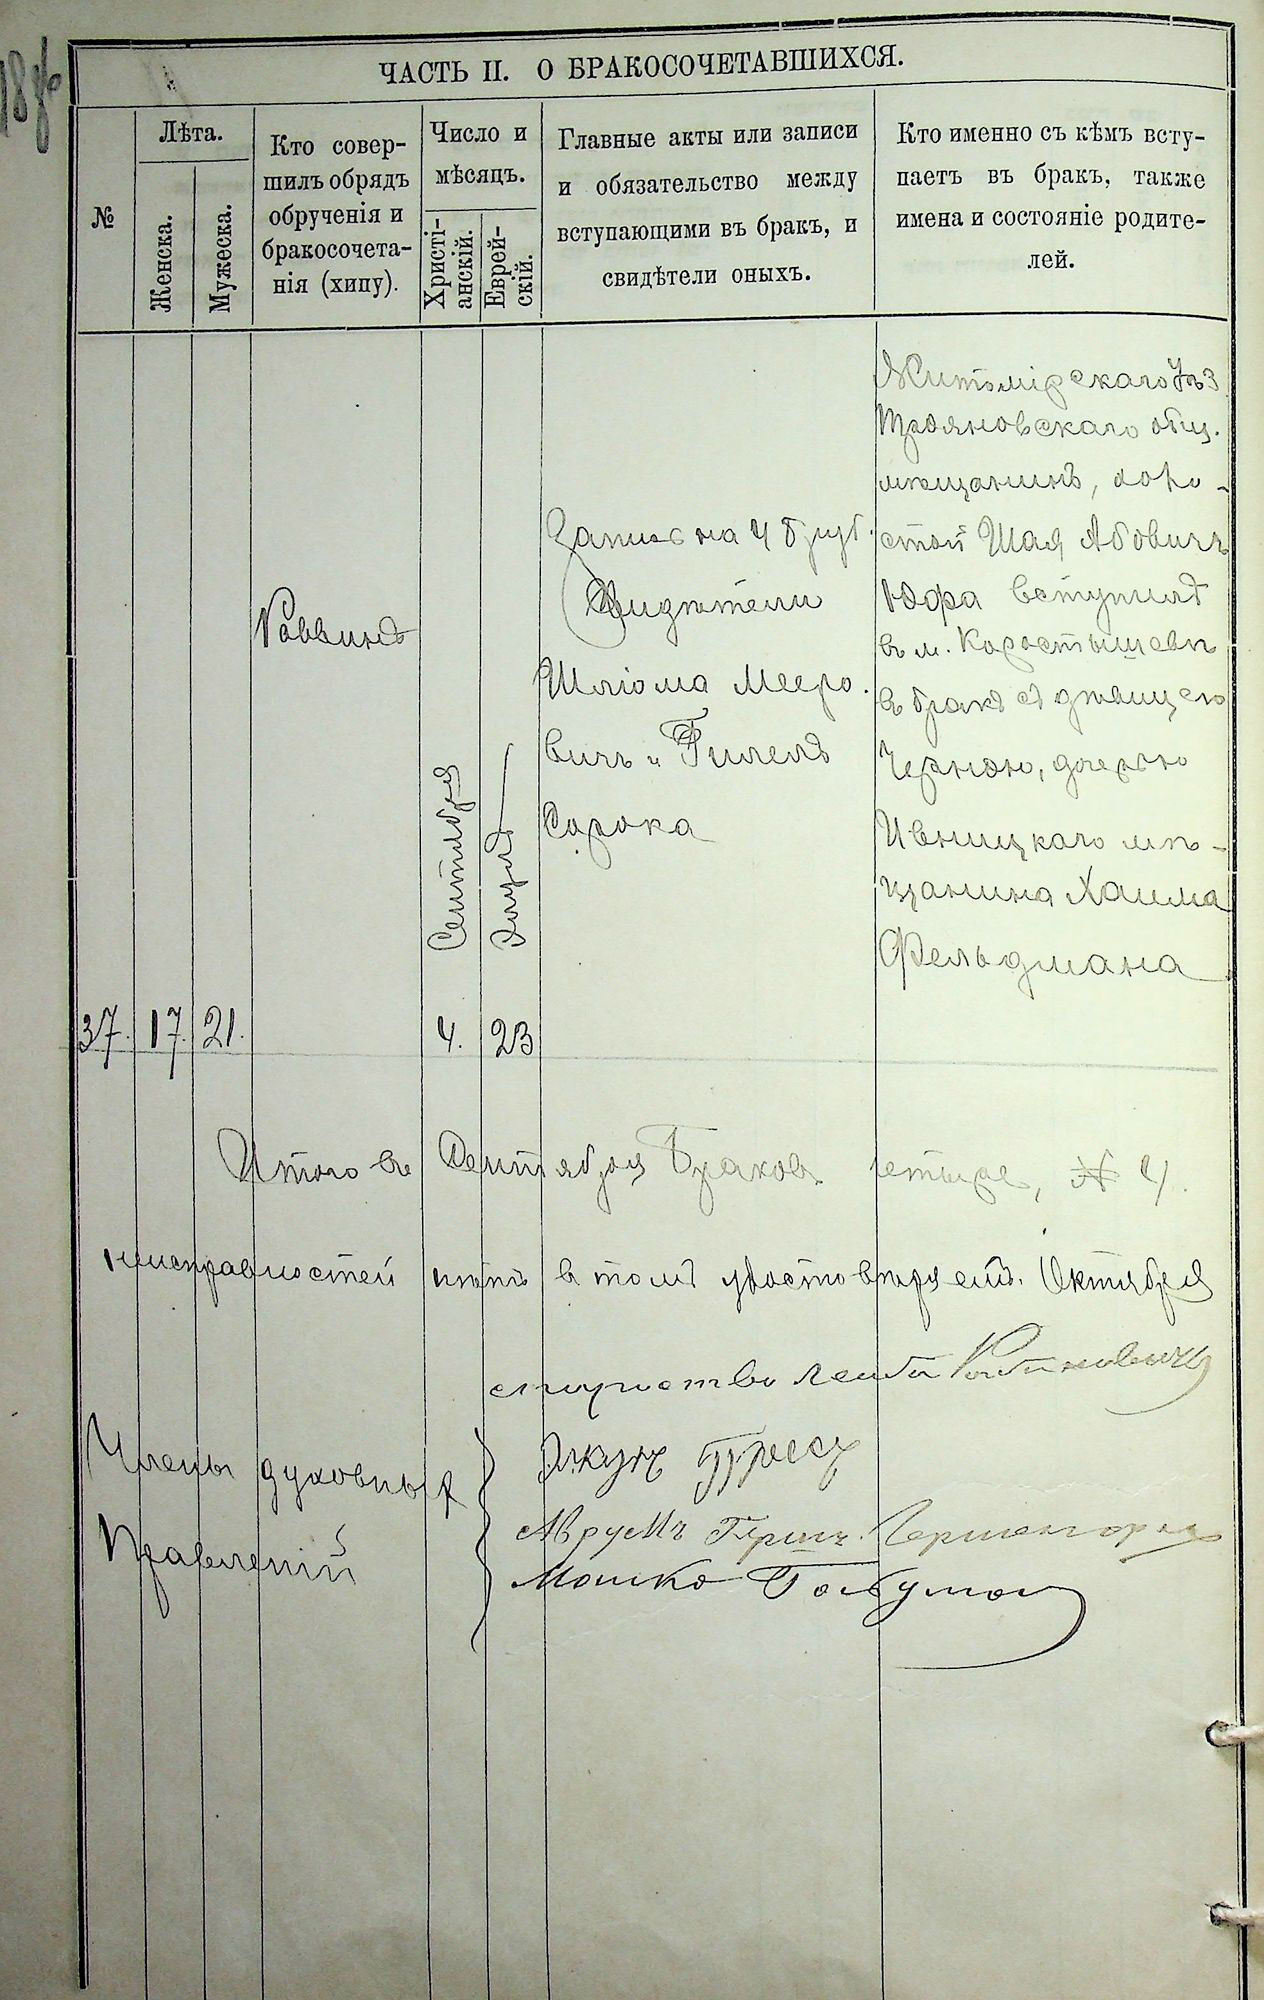 ЧАСТЬ II. О БРАКОСОЧЕТАВШИХСЯ.
№
Лѣта.
Женска.
Мужеска.
Кто совер-
шилъ обрядъ
обрученія и
бракосочета-
нія (хипу).
Число и
мѣсяцъ.
Христі-
анскій.
Еврей-
скій.
Главные акты или записи
и обязательство между
вступающими въ бракъ, и
свидѣтели оныхъ.
Кто именно съ кѣмъ всту-
паетъ въ бракъ, также
имена и состояніе родите-
лей.
37.
17.
21.
Раввинъ
Сентября
4.
Элулъ
23
Запись на
Свидѣтели
Шліома Мееро
вичъ и Гилелъ
Сорока
Житомірскаго Уѣз
Трояновскаго общ.
мѣщанинъ, холо-
стой Шая Абовичъ
Юфа вступилъ
въ м. Коростышевѣ
въ бракъ съ дѣвицею
Черною, дочерью
Ивницкаго мѣ-
щанина Хаима
Фельдмана
Итого въ Сентябрѣ Браковъ четыре, № 4.
неисправностей нѣтъ въ томъ удостовѣряемъ. Октября
Лейба Рабиновичъ
Члены духовныхъ
Правленій
Аврумъ Гершъ
Мошко